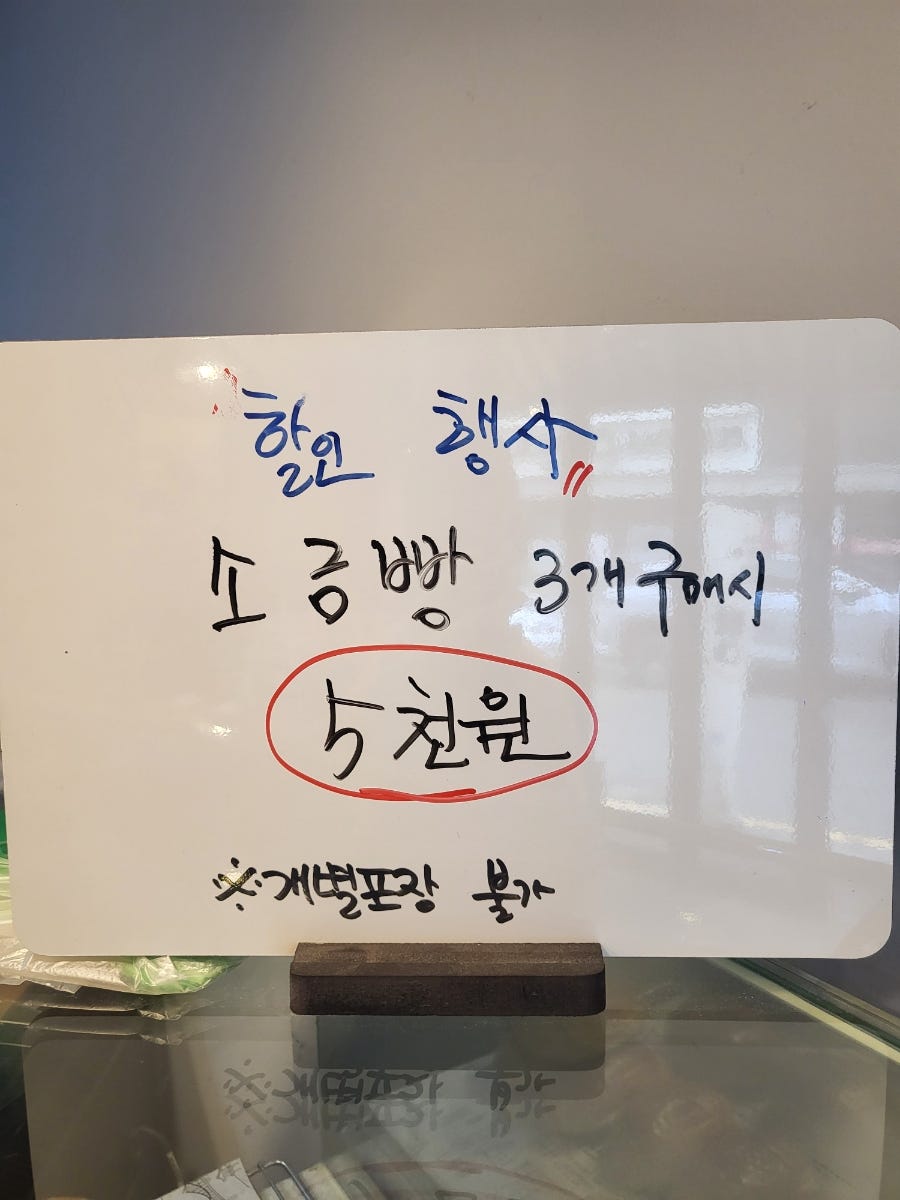 할인 행사"
소금빵 3개 구매시
5천원
※개별포장 불가